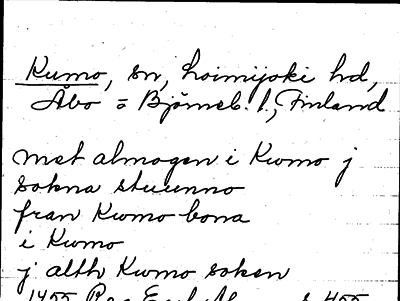 Kumo, sn, Loimijoki hd,
Åbo o Björneb. l, Finland
met almogen i Kwmo j
sokna stuunno
fran Kwmo bona
i Kwmo
j alth Kwmo soken
1455